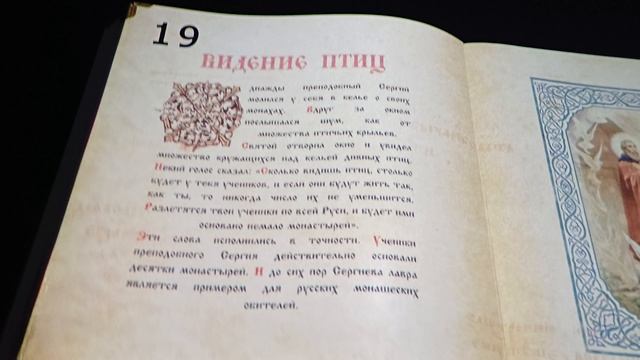 19
ВИДЕНИЕ ПТИЦ
Однажды преподобный Сергий
молился у себя в келье о своих
монахах. Вдруг за окном
послышался шум, как от
множества птичьих крыльев.
Святой отворил окно и увидел
множество кружащихся над кельей дивных птиц.
Некий голос сказал: «Сколько видишь птиц, столько
будет у тебя учеников, и если они будут жить так,
как ты, то никогда число их не уменьшится.
Разлетятся твои ученики по всей Руси, и будет ими
основано немало монастырей».
Эти слова исполнились в точности. Ученики
преподобного Сергия действительно основали
десятки монастырей. И до сих пор Сергиева лавра
является примером для русских монашеских
обителей.